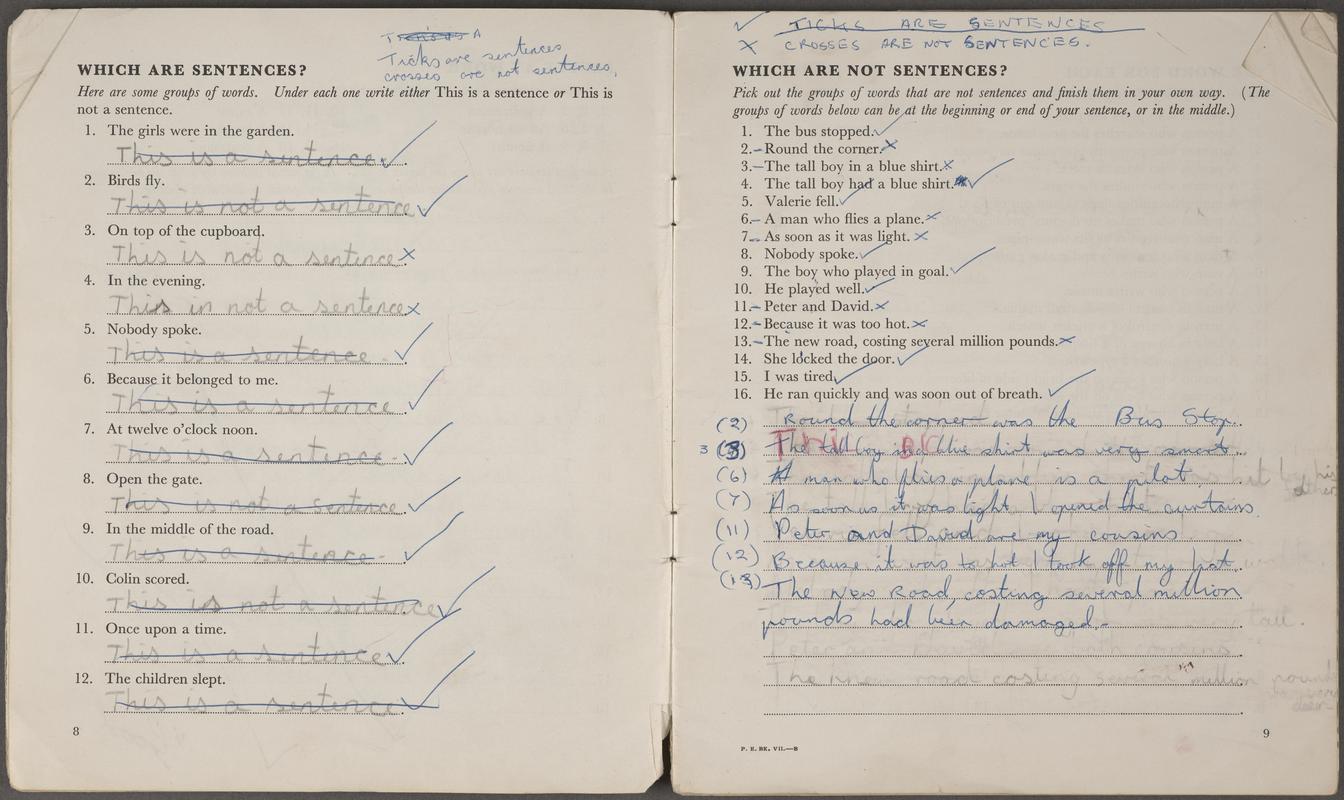 Ticks are sentences
crosses are not sentences.
WHICH ARE SENTENCES?
Here are some groups of words. Under each one write either This is a sentence or This is
not a sentence.
1. The girls were in the garden.
This is a sentence.
2. Birds fly.
This is not a sentence
3. On top of the cupboard.
This is not a sentence
4. In the evening.
This in not a sentence
5. Nobody spoke.
This is a sentence.
6. Because it belonged to me.
This is a sentence
7. At twelve o'clock noon.
This is a sentence.
8. Open the gate.
This is not a sentence
9. In the middle of the road.
This is a sentence
10. Colin scored.
This is not a sentence
11. Once upon a time.
This is a sentence
12. The children slept.
This is a sentence
8
✓ TICKS ARE SENTENCES
X CROSSES ARE NOT SENTENCES.
WHICH ARE NOT SENTENCES?
Pick out the groups of words that are not sentences and finish them in your own way. (The
groups of words below can be at the beginning or end of your sentence, or in the middle.)
1. The bus stopped.
2. Round the corner.
3. The tall boy in a blue shirt.
4. The tall boy had a blue shirt.
5. Valerie fell.
6. A man who flies a plane.
7. As soon as it was light.
8. Nobody spoke.
9. The boy who played in goal.
10. He played well.
11. Peter and David.
12. Because it was too hot.
13. The new road, costing several million pounds.
14. She locked the door.
15. I was tired.
16. He ran quickly and was soon out of breath.
(2) Round the corner was the Bus Stop.
3 (3) The tall boy in a blue shirt was very smart.
(6) A man who flies a plane is a pilot.
(7) As soon as it was light I opened the curtains.
(11) Peter and David are my cousins
(12) Because it was to hot I took off my hat.
(13) The New Road, costing several million
pounds had been damaged.
tall.
The knew road costing several million pound
P. E. BK. VII.—B
9